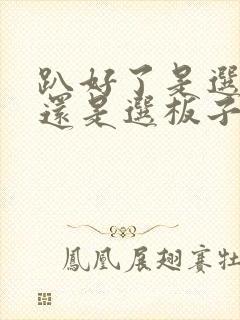 趴好了是選
還是選板子
鳳凰展翅賽牡